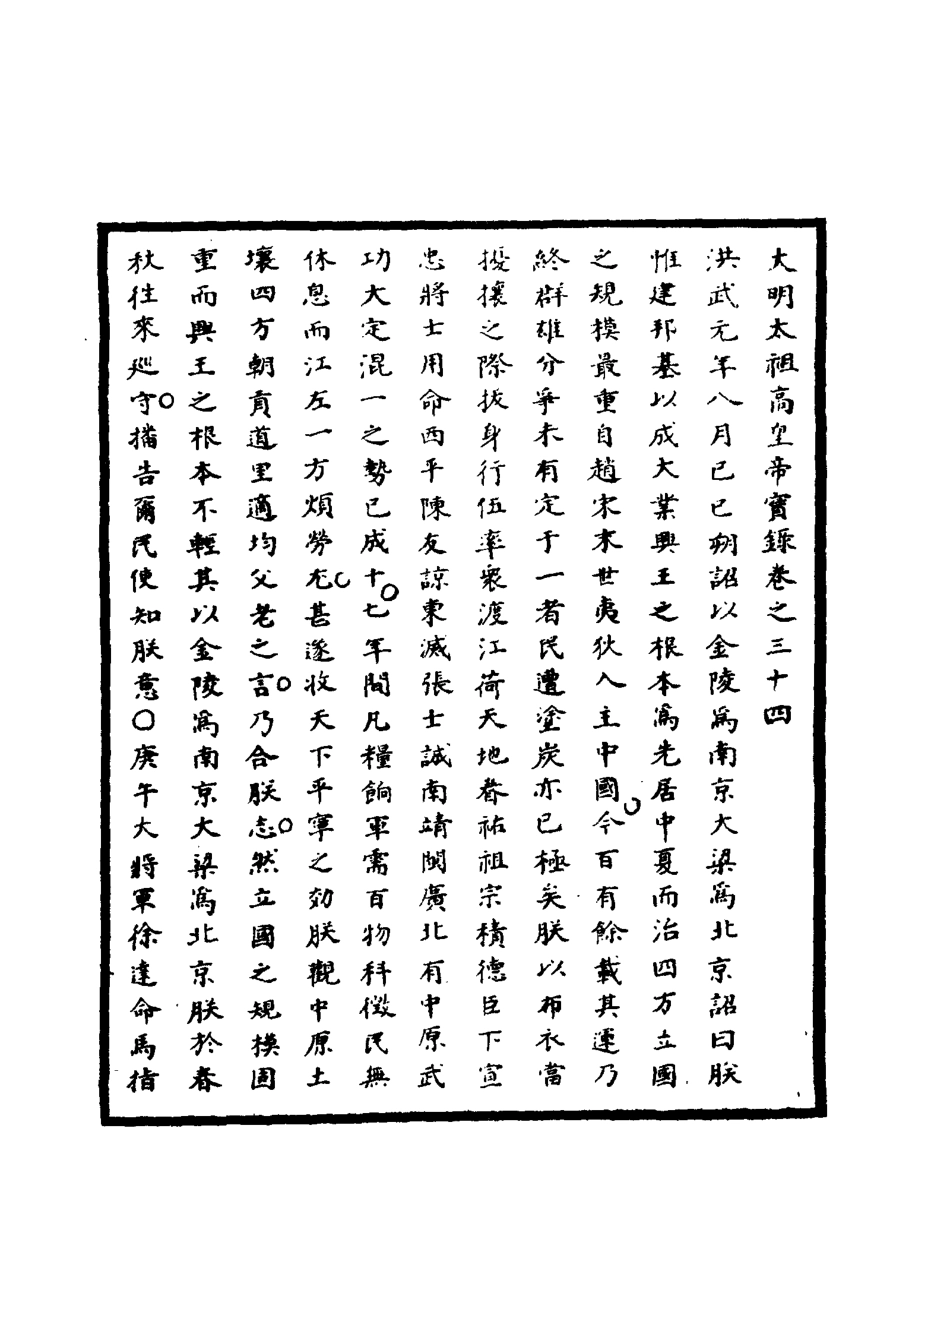 大明太祖高皇帝實錄卷之三十四
洪武元年八月己巳朔詔以金陵爲南京大梁爲北京詔曰朕
惟建邦基以成大業興王之根本爲先居中夏而治四方立國
之規模最重自趙宋末世夷狄入主中國今百有餘載其運乃
終群雄分爭未有定于一者民遭塗炭亦已極矣朕以布衣當
擾攘之際拔身行伍率衆渡江荷天地眷祐祖宗積德臣下宣
忠將士用命西平陳友諒東滅張士誠南靖閩廣北有中原武
功大定混一之勢已成十七年間凡糧餉軍需百物科徵民無
休息而江左一方煩勞尤甚遂收天下平寧之効朕觀中原土
壤四方朝貢道里適均父老之言乃合朕志然立國之規模固
重而興王之根本不輕其以金陵爲南京大梁爲北京朕於春
秋往來廵守播告爾民使知朕意〇庚午大將軍徐達命馬指